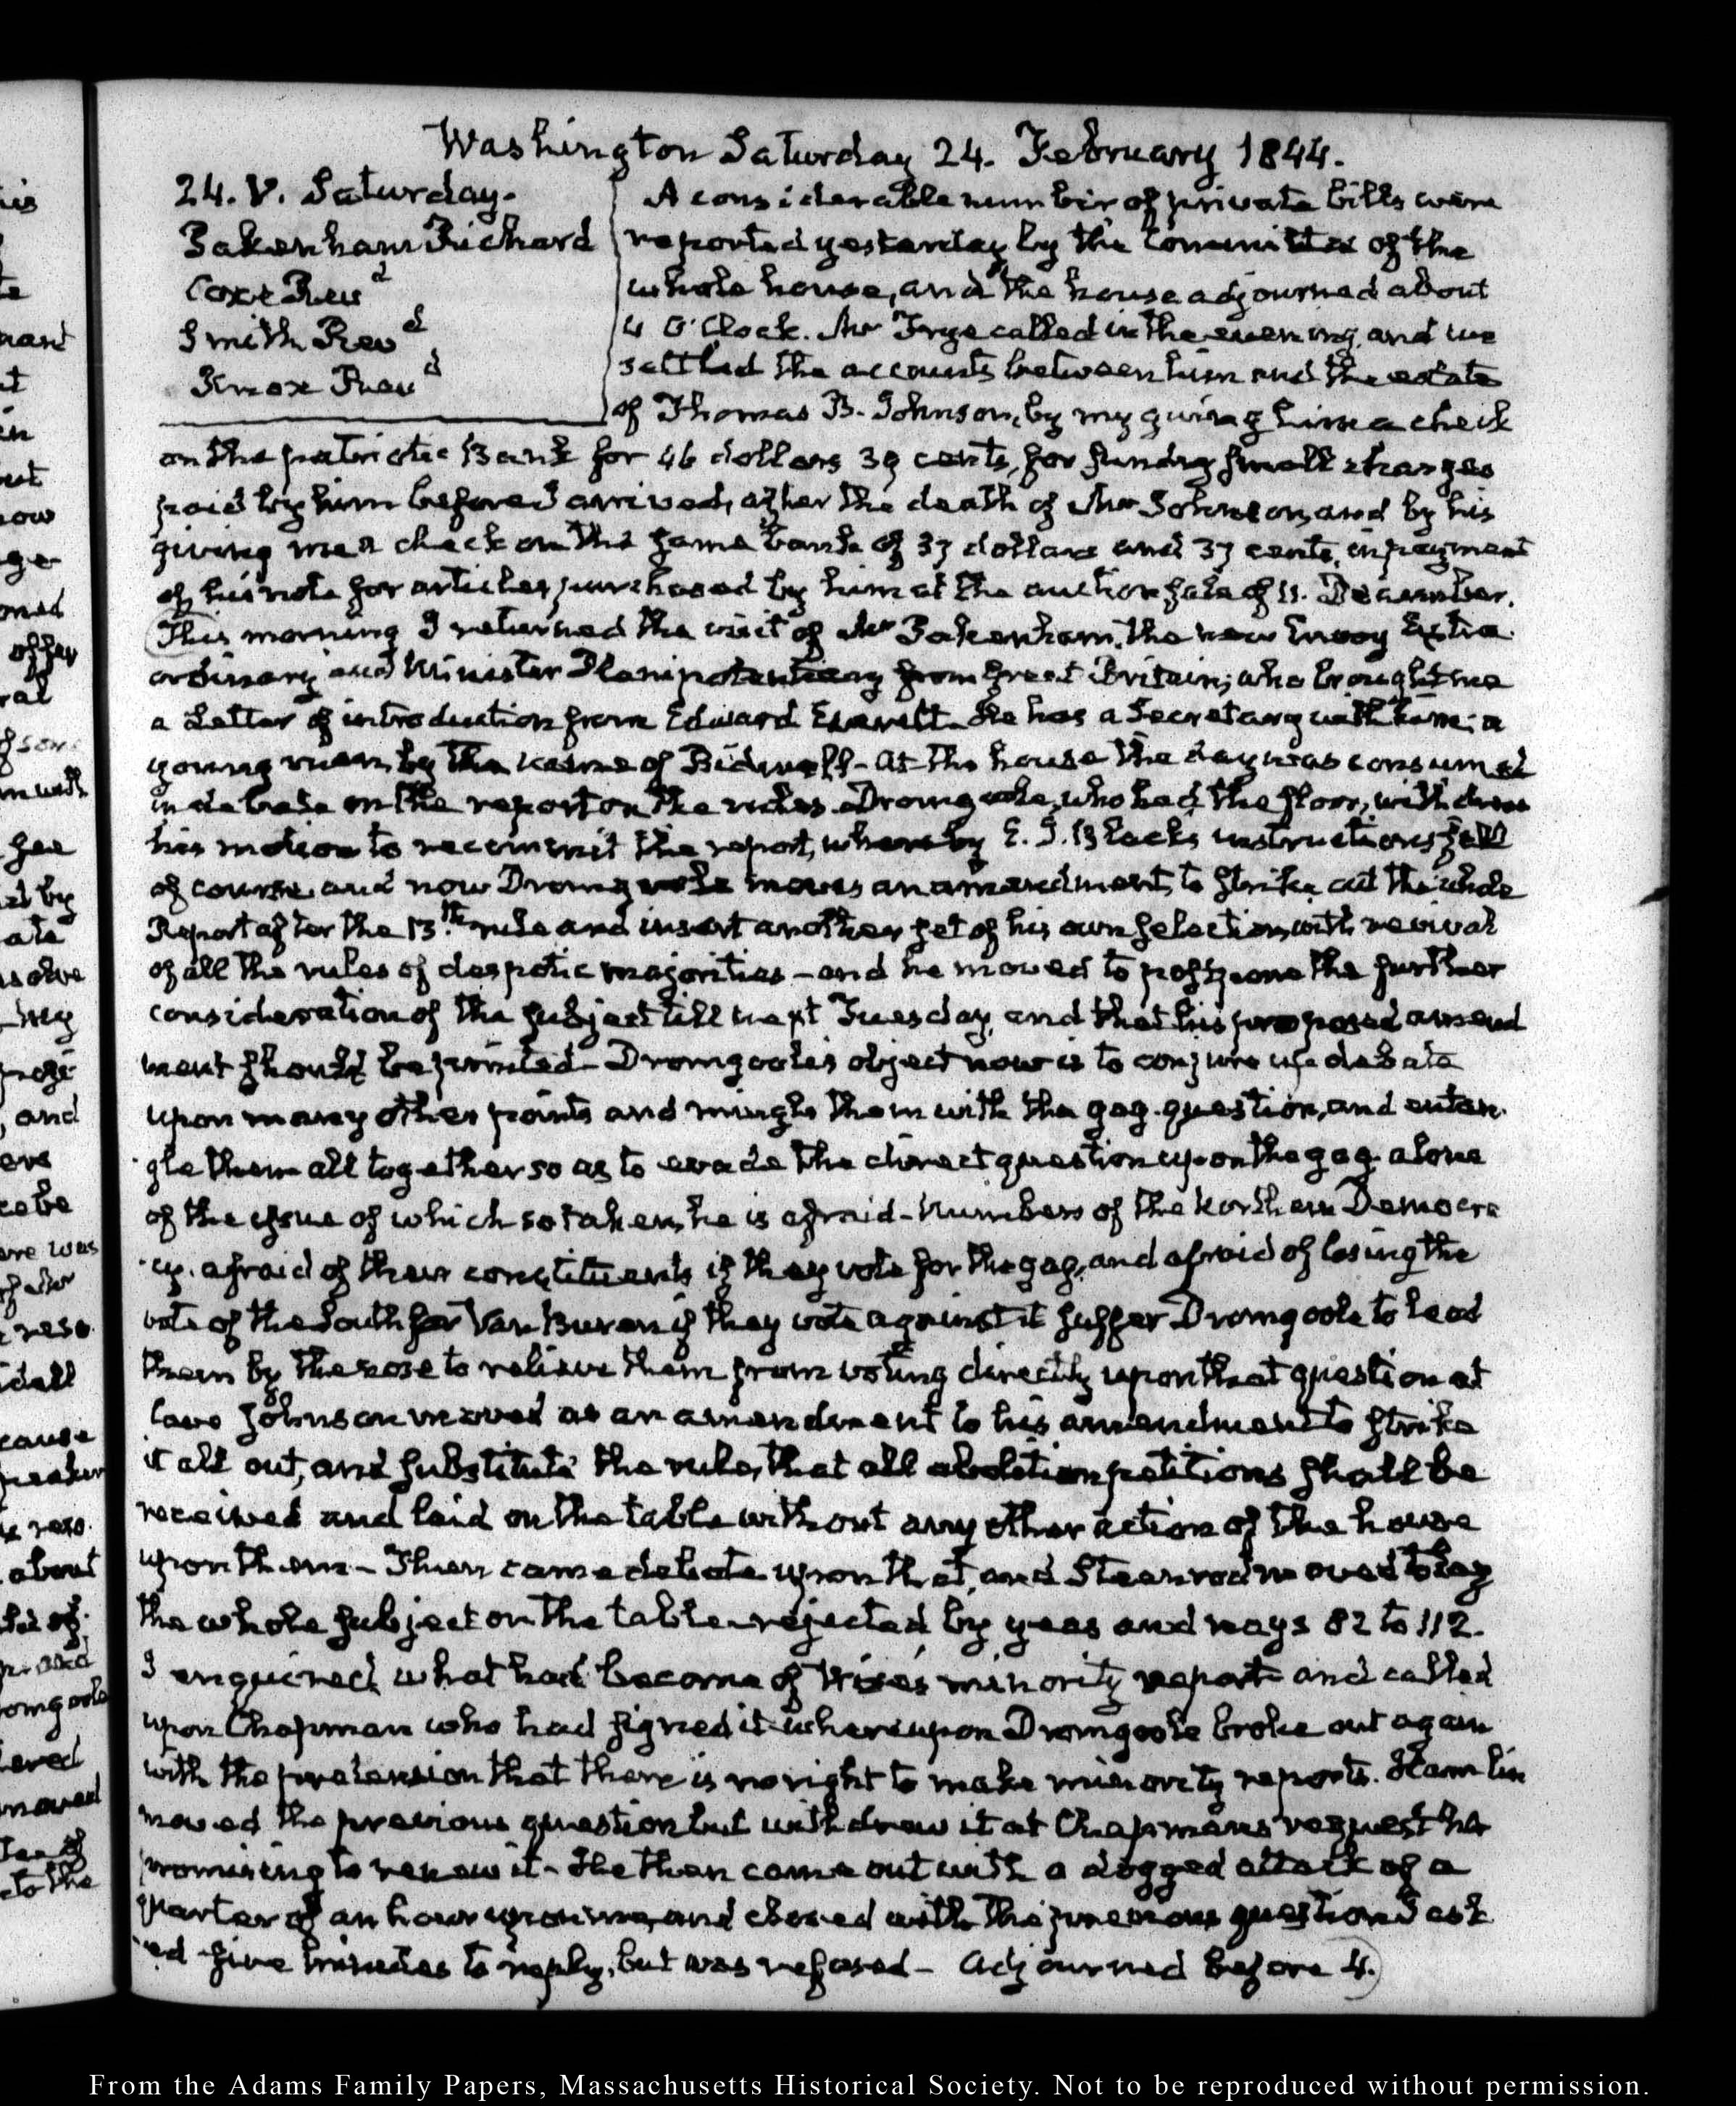 Washington Saturday 24. February 1844.
24. V. Saturday.
Pakenham Richard
Coxe Reuᵈ
Smith Reuᵈ
Knox Reuᵈ
A considerable number of private bills were
reported yesterday by the Committee of the
whole house, and the house adjourned about
4 O'Clock. Mr Frye called in the evening, and we
settled the accounts between him and the estate
of Thomas B. Johnson, by my giving him a check
on the patriotic Bank for 46 dollars 39 cents, for sundry small charges
paid by him before I arrived, after the death of Mr Johnson, and by his
giving me a check on the same bank of 37 dollars and 37 cents, in payment
of his note for articles purchased by him at the auction sale of 11. December.
This morning I returned the visit of Mr Pakenham, the new Envoy Extra
ordinary and Minister Plenipotentiary from Great Britain; who brought me
a Letter of introduction from Edward Everett. He has a Secretary with him; a
young man, by the name of Bidwell - At the house the day was consumed
in debate on the report on the rules. Dromgoole, who had the floor, withdrew
his motion to recommit the report, whereby E. J. Black's instructions fell
of course, and now Dromgoole moves an amendment, to strike out the whole
Report after the 13.th rule and insert another set of his own selection, with revival
of all the rules of despotic majorities - and he moved to postpone the further
consideration of the subject till next Tuesday, and that his proposed amend
ment should be printed - Dromgoole's object now is to conjure up debate
upon many other points and mingle them with the gag-question, and entan-
gle them all together so as to evade the direct question upon the gag alone
of the issue of which so taken, he is afraid - Numbers of the Northern Democra
cy, afraid of their constituents if they vote for the gag, and afraid of losing the
vote of the South for Van Buren if they vote against it suffer Dromgoole to lead
them by the nose to relieve them from voting directly upon that question at
Cave Johnson moved as an amendment to his amendment to strike
it all out, and substitute the rule, that all abolition petitions shall be
received and laid on the table without any other action of the house
upon them - Then came debate upon that, and Steenrod moved to lay
the whole subject on the table - rejected by yeas and nays 82 to 112.
I enquired what had become of Wise's minority report and called
upon Chapman who had signed it - whereupon Dromgoole broke out again
with the pretension that there is no right to make minority reports. Hamlin
moved the previous question but withdrew it at Chapman's request he
promising to renew it - He then came out with a dogged attack of a
quarter of an hour upon me, and closed with the previous question I ask
ed five minutes to reply, but was refused - Adjourned before 4.
From the Adams Family Papers, Massachusetts Historical Society. Not to be reproduced without permission.